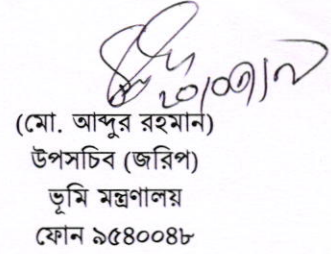 (মো. আব্দুর রহমান)
উপসচিব (জরিপ)
ভূমি মন্ত্রণালয়
ফোন ৯৫৪০০৪৮